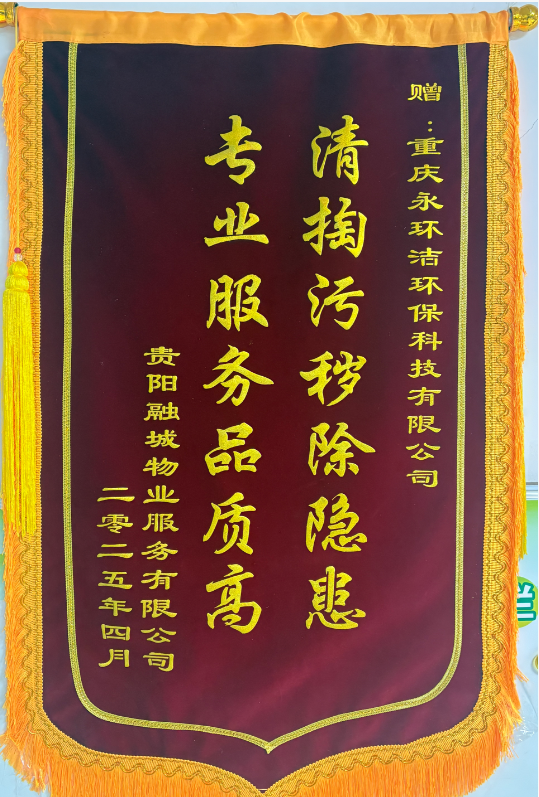 赠：重庆永环洁环保科技有限公司
清掏污秽除隐患
专业服务品质高
贵阳融城物业服务有限公司
二零二五年四月